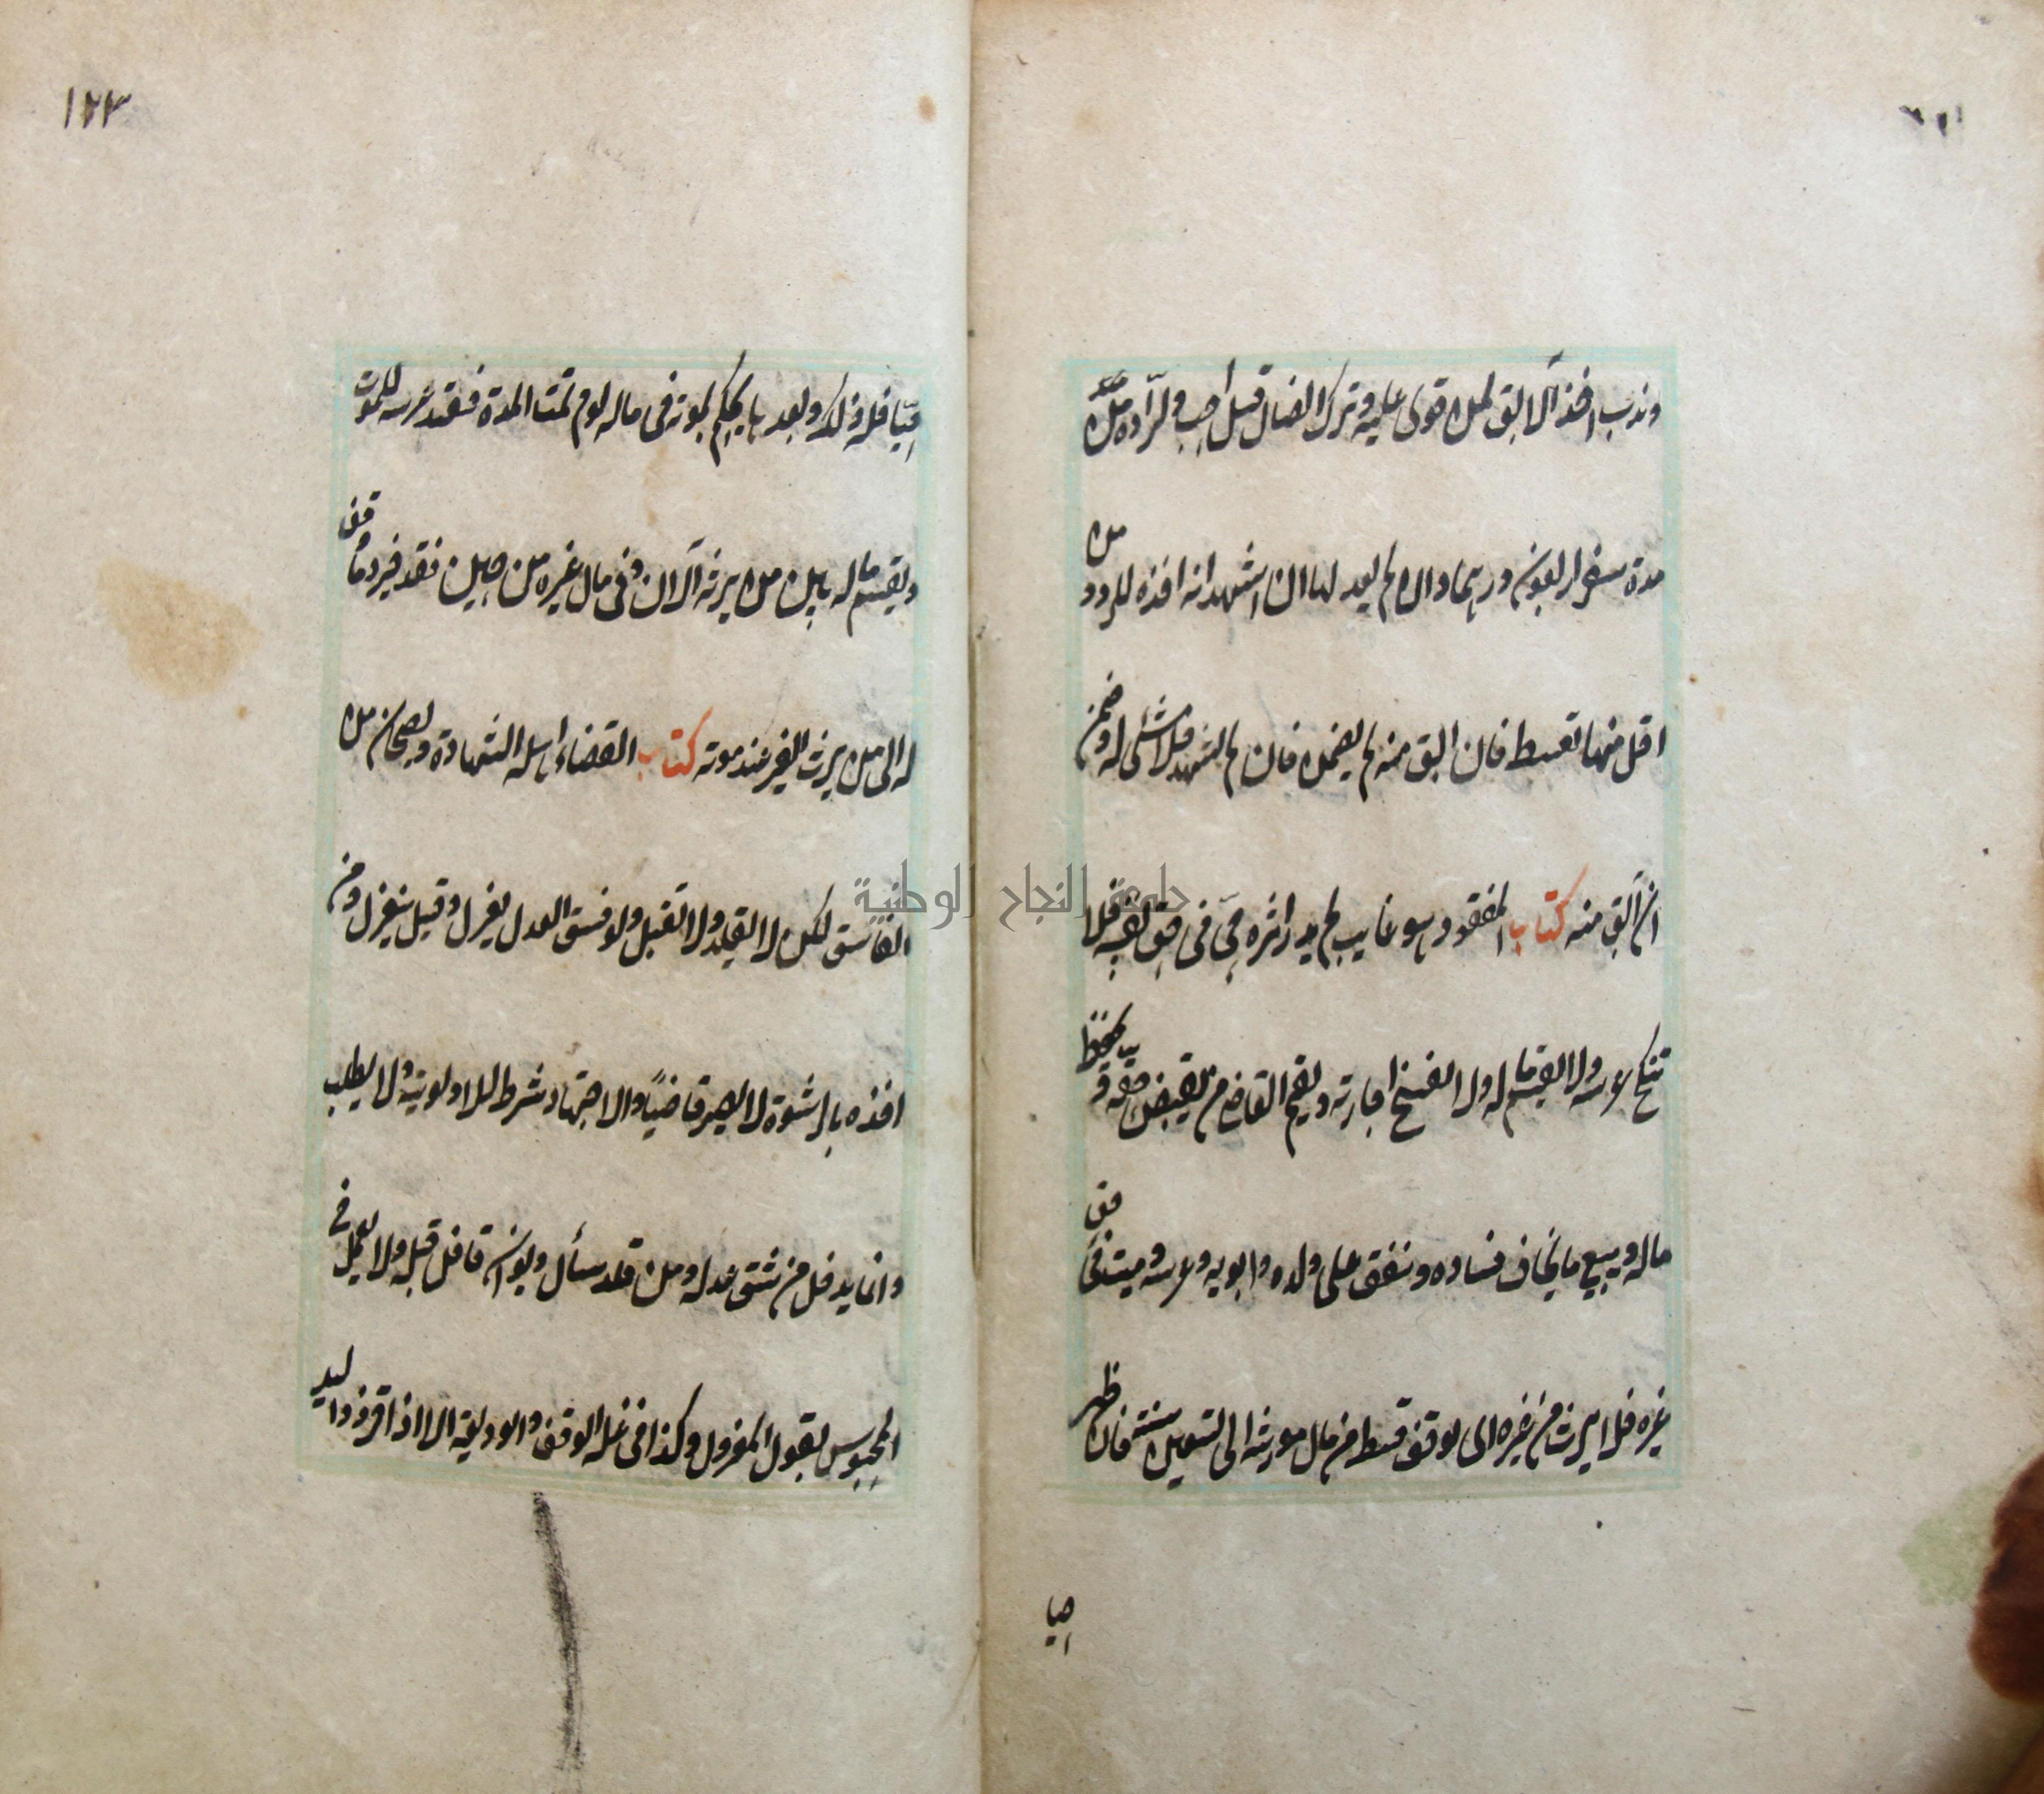 وندب اخذ الآبق لمن قوى عليه وترك الضال قيل احب ولراده من
مدة سفر اربعون درهما وان لم يعدلها ان اشهد انه اخذه للرد ومن
اقل منها بقسط فان ابق منه لم يضمن فان لم يشهد فلا شئ له وضمن
ان ابق منه كتاب المفقود هو غايب لم يدر اثره حي في حق نفسه فلا
تنكح عرسه ولا يقسم ماله ولا تفسخ اجارته ويقيم القاضي من يقبض حقه ويحفظ
ماله ويبيع ما يخاف فساده وينفق على ولده وابويه وعرسه وميت في حق
غيره فلا يرث من غيره اى يوقف قسط من مال مورثه الى تسعين سنة فان ظهر
احيا
١٢٣
حيا فله ذلك وبعدها يحكم بموته في ماله يوم تمت المدة فتعتد عرسه للموت
ويقسم ماله بين من يرثه الآن وفي مال غيره من حين فقد فيرد ما وقف
له الى من يرث الغير عند موته كتاب القضاء اهله اهل الشهادة ويصح من
الفاسق لكن لا يقلد ولا تقبل ولو فسق العدل يعزل وقيل ينعزل ومن
اخذه بالرشوة لا يصير قاضيا والاجتهاد شرط للاولوية ولا يطلب
وانما يدخل من يثق عدله ومن قلد سأل ديوان قاض قبله ولا يعمل في
المحبوس بقول المعزول وكذا في غلة الوقف والوديعة الا اذا اقر ذو اليد
جامعة النجاح الوطنية